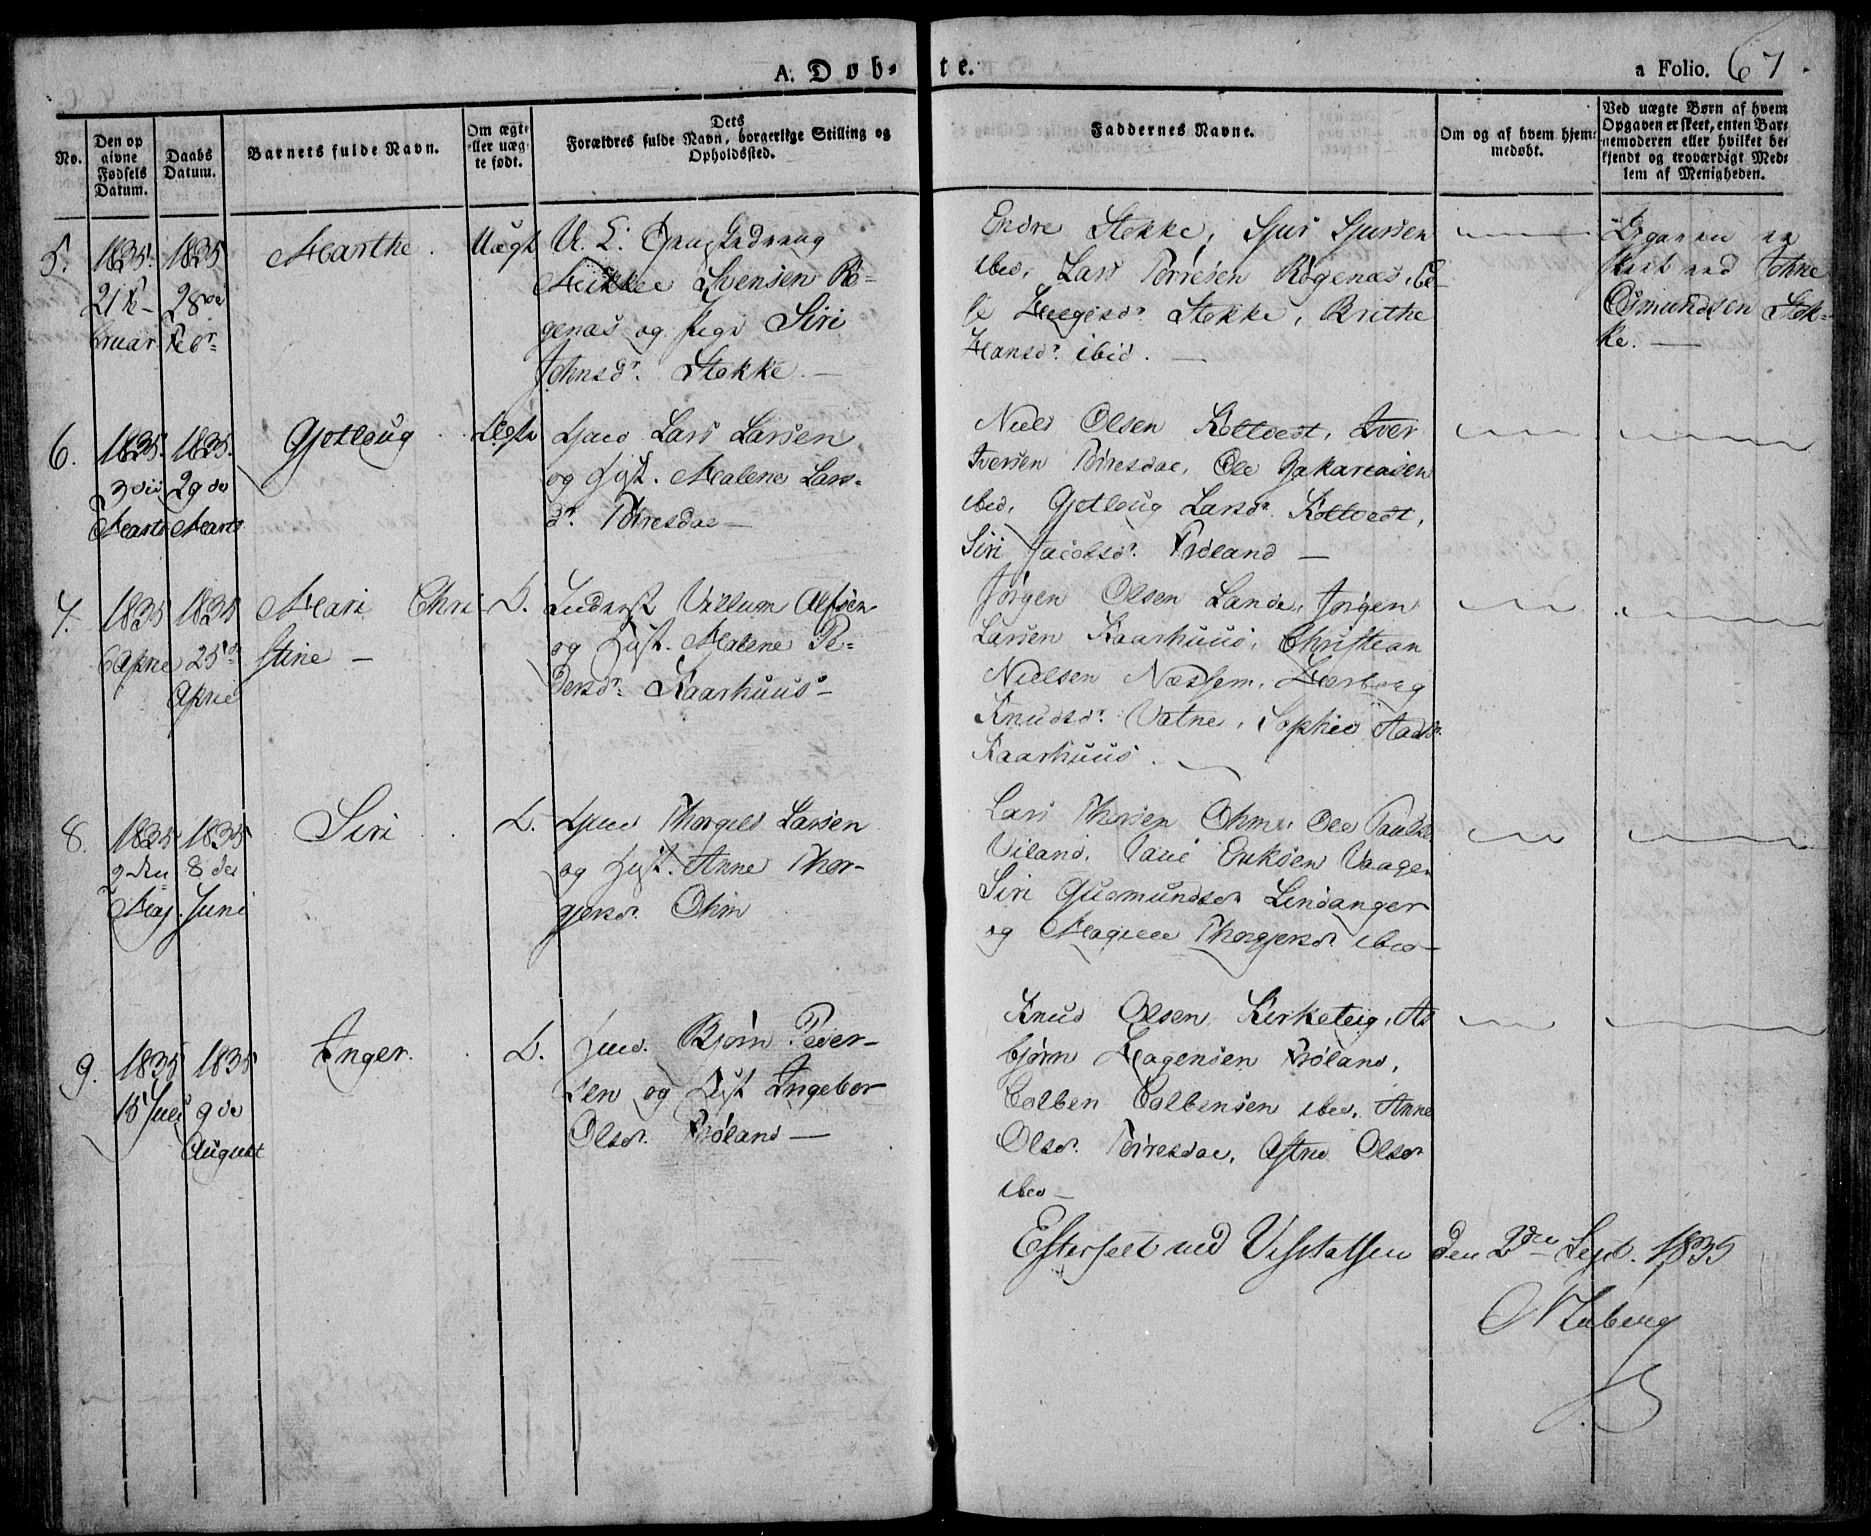 A. Døb-te.
a Folio. 67.
No.
Den op
givne
Fødsels
Datum.
Daabs
Datum.
Barnets fulde Navn.
Om ægte
eller uæg-
te født.
Dets
Forældres fulde Navn, borgerlige Stilling og
Opholdssted.
Faddernes Navne.
Om og af hvem hjem-
medøbt.
Ved uægte Børn af hvem
Opgaven er skeet, enten Bar-
nemoderen eller hvilket be-
kjendt og troværdigt Med-
lem af Menigheden.
5.
1835.
21 Fe-
bruar
1835
28de
Febr.
Marthe.
Uægte
U. L.
Mikkel Svensen Rø-
genæs og Pige Siri
Johnsdr. Stokke. —
Endre Stokke, Sjur Sjursen
ibid, Lars Torresen Røgenæs,
Helgesdr. Stokke, Brithe
Hansdr. ibid. —
Opgaven er
skeet ved Johne
Osmundsen Stok-
ke. —
6.
1835.
3die
Marts
1835.
29de
Marts
Gjotloug
Ægte
Gmd Lars Larsen
og Hust. Malene Lars-
dr. Torresdal —
Niels Olsen Koltvedt, Iver
Iversen Torresdal, Ole Zakariasen
ibid, Gjotloug Larsdr. Koltvedt,
Siri Jacobsdr. Frøland —
7.
1835
6 April
1835
25de
April
Mari Chri-
stine —
Æ.
Inderst Villum Alfsen
og Hust. Malene Pe-
dersdr. Kaarhuus —
Jørgen Olsen Lande, Jørgen
Larsen Kaarhuus, Christian
Nielsen Næssem, Herborg
Knudsdr. Vatne, Sophie
Kaarhuus.
8.
1835
9den
Maj.
1835
8de
Juni
Siri
Æ.
Gmd Thorgils Larsen
og Hust. Anne Thor-
gjersdr. Ohm
Lars Thorsen Ohm, Ole Paulse
Viland, Paul Eriksen Vaage
Siri Gudmundsdr. Lindanger
og Magrete Thorgjersdr. ibid —
9.
1835
15 Juli
1835
9de
August
Inger.
Æ.
Gmd. Bjørn Peder-
sen og Hust Ingebor
Olsdr. Frøland —
Knud Olsen Kirketeig, As
bjørn Hagensen Frøland,
Colben Colbensen ibid, Anne
Olsdr. Torresdal, Astrid Olsdr
ibid —
Efterseet ved Visitatsen den 2den Sept. 1835